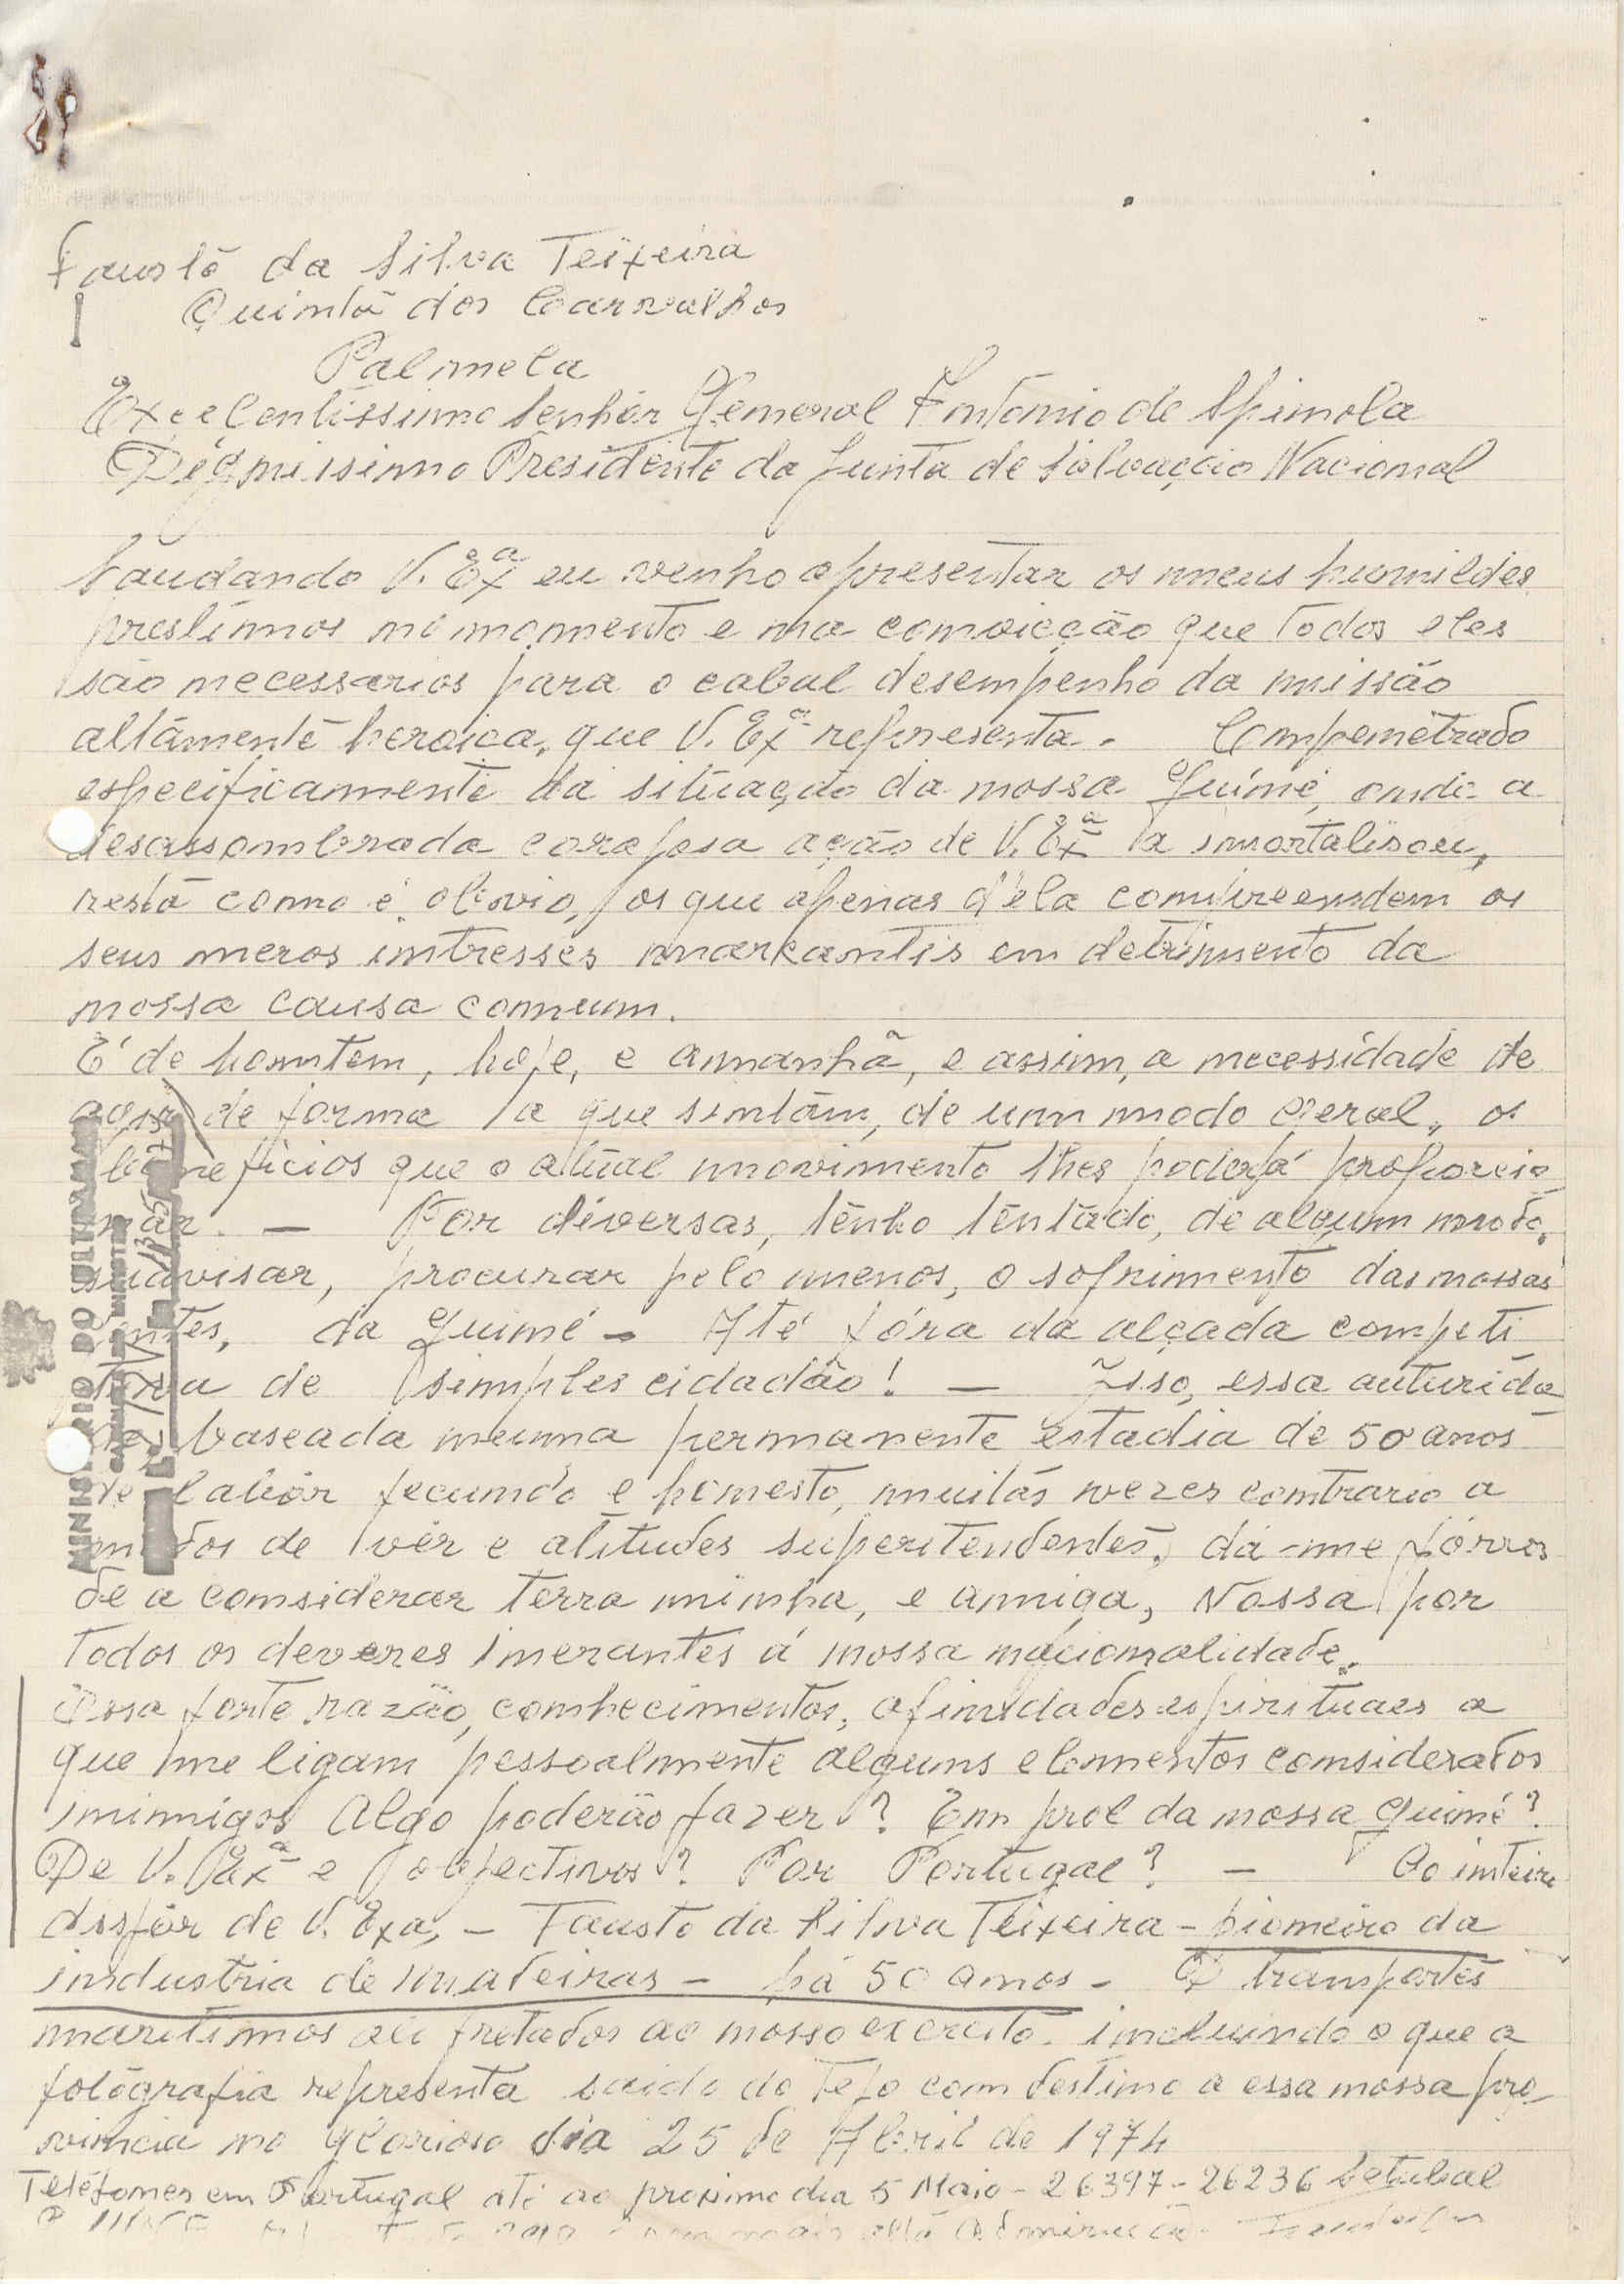 Fausto da Silva Teixeira
Quinta dos Carvalhos
Palmela
Excelentissimo Senhór General Antonio de Spinola
Degnissimo Presidente da Junta de Salvação Nacional
Saudando V. Exª eu venho apresentar os meus humildes
prestimos no momento e na convicção que todos eles
são necessarios para o cabal desempenho da missão
altámente heroica, que V. Exª representa. Compenetrado
especificamente da situação da nossa Guiné, onde a
desassombrada corajosa ação de V. Exª a imortalisou,
resta como é obvio, os que apenas d'ela compreendem os
seus meros intresses markantis em detrimento da
nossa causa comum.
É de hontem, hoje, e amanhã, e assim, a necessidade de
agir de forma a que sintám, de um modo geral, os
beneficios que o atual movimento lhes poderá proporcio
nar. — Por diversas, tenho tentado, de algum modo,
suavisar, procurar pelo menos, o sofrimento das nossas
gentes, da Guiné - Até fóra da alçada competi
tiva de simples cidadão! — Isso, essa auturida
de, baseada numa permanente estadia de 50 anos
de labór fecundo e honesto, muitas vezes contrario a
modos de vêr e atitudes superitendentes, dá-me fóros
de a considerar terra minha, e amiga, Nossa por
todos os deveres inerantes á nossa nacionalidade.
Essa forte razão, conhecimentos, afinidades espirituaes a
que me ligam pessoalmente alguns elementos considerados
inimigos Algo poderão fazer? Em prol da nossa Guiné?
De V. Exª e objectivos? Por Portugal? — Ao inteiro
dispôr de V. Exa, - Fausto da Silva Teixeira - pioneiro da
industria de madeiras - há 50 anos - E transportes
maritimos ali fretados ao nosso exercito. incluindo o que a
fotógrafia representa saido do Tejo com destino a essa nossa pro
vincia no glorioso dia 25 de Abril de 1974
Teléfones em Portugal até ao proximo dia 5 Maio - 26397 - 26236 Setubal
com mais alta Admiração
MINISTÉRIO DO ULTRAMAR
GABINETE DO MINISTRO